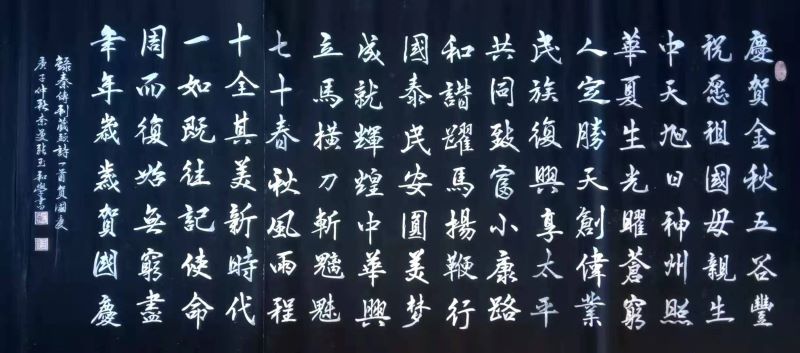 慶賀金秋五谷豐
祝愿祖國母親生
中天旭日神州照
華夏生光曜蒼窮
人定勝天創偉業
民族復興享太平
共同致富小康路
和諧躍馬揚鞭行
國泰民安圓美梦
成就輝煌中華興
立馬橫刀斬魑魅
七十春秋風雨程
十全其美新時代
一如既往記使命
周而復始無窮盡
年年歲歲賀國慶
錄秦傳利藏頭詩一首賀國慶
庚子仲秋張玉和學書